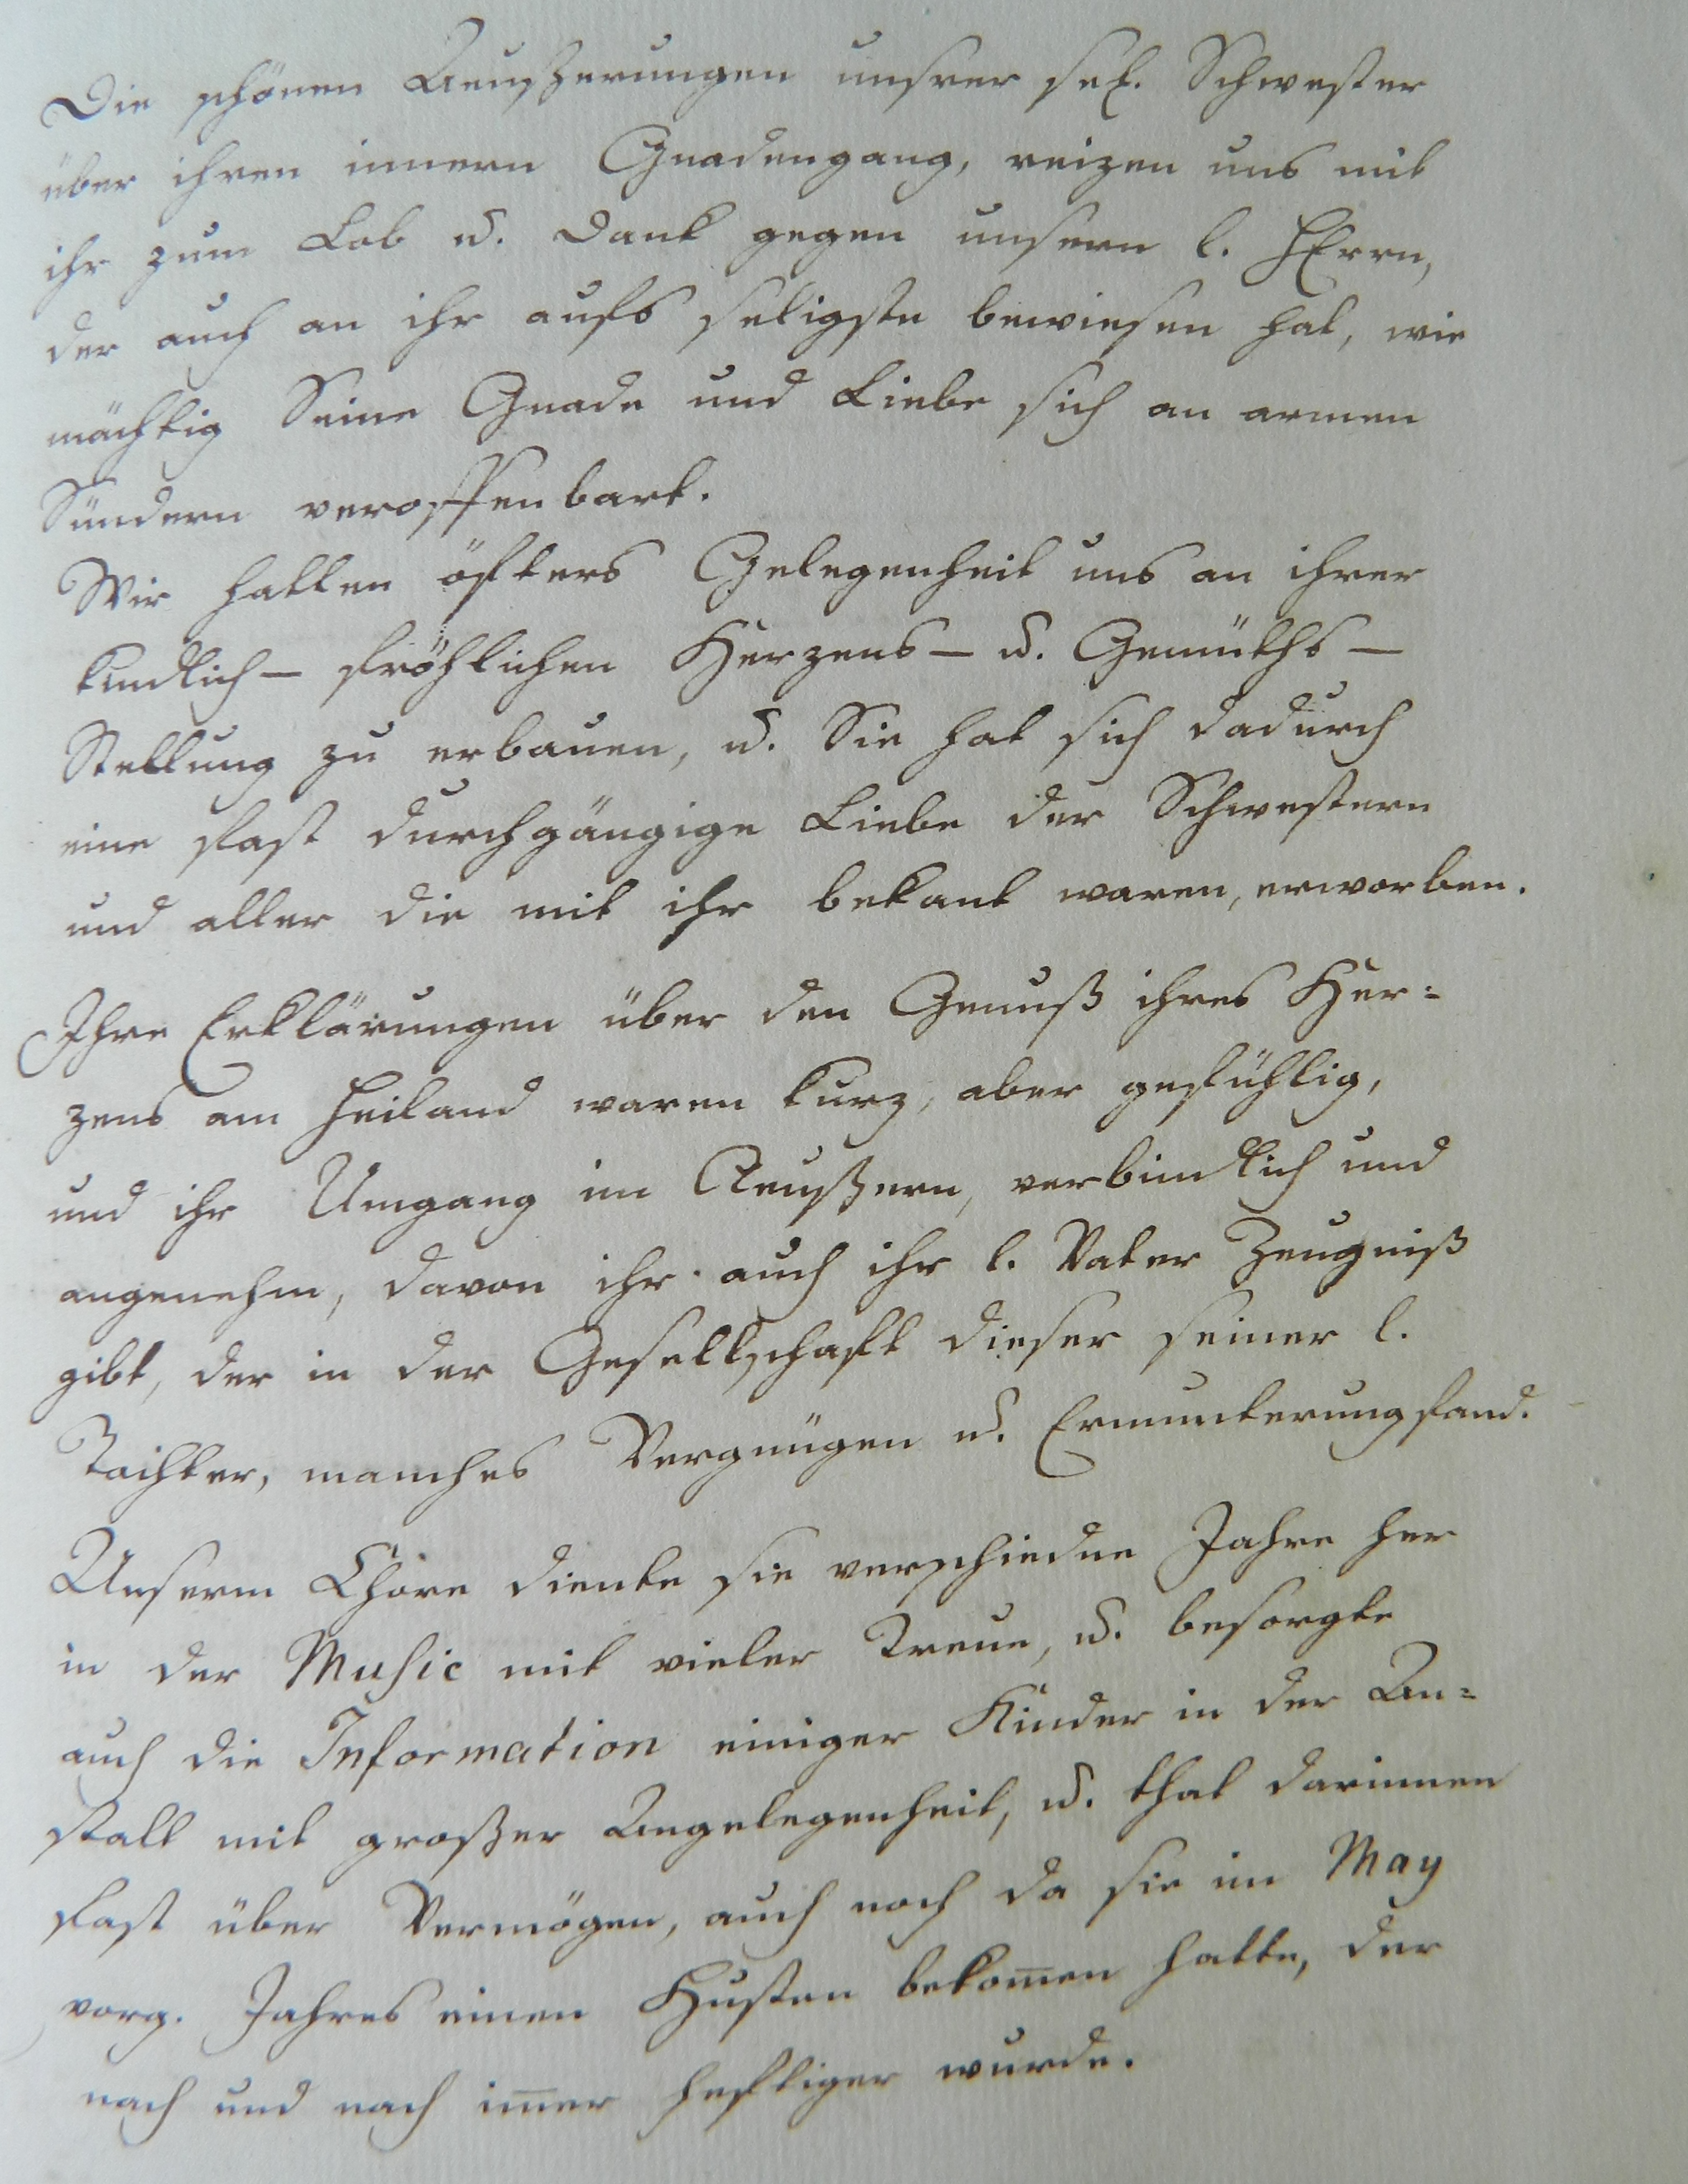 Die schönen Aeuszerungen unsrer sel. Schwester
über ihren innern Gnadengang, reizen uns mit
ihr zum Lob u. Dank gegen unsern l. HErrn,
der auch an ihr aufs seligste bewiesen hat, wie
mächtig Seine Gnade und Liebe sich an armen
Sündern veroffenbart.
Wir hatten öfters Gelegenheit uns an ihrer
kindlich- fröhlichen Herzens- u. Gemüths-
Stellung zu erbauen, u. Sie hat sich dadurch
eine fast durchgängige Liebe der Schwestern
und aller die mit ihr bekant waren, erworben.
Ihre Erklärungen über den Genuß ihres Her=
zens am Heiland waren kurz, aber gefühlig,
und ihr Umgang im Aeußern, verbindlich und
angenehm, davon ihr auch ihr l. Vater Zeugniß
gibt, der in der Gesellschaft dieser seiner l.
Tochter, manches Vergnügen u. Ermunterung fand.
Unserm Chore diente sie verschiedne Jahre her
in der Music mit vieler Treue, u. besorgte
auch die Information einiger Kinder in der An=
stalt mit großer Angelegenheit, u. that darinnen
fast über Vermögen, auch noch da sie im May
vorg. Jahres einen Husten bekom̅en hatte, der
nach und nach im̅er heftiger wurde.